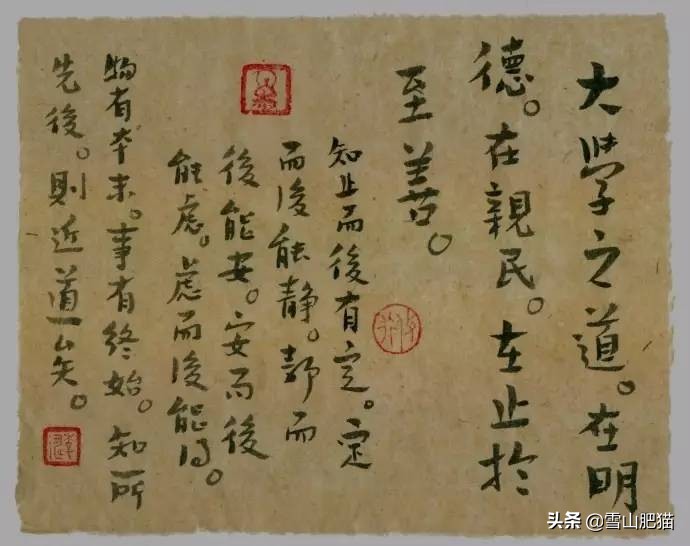 大學之道。在明
德。在親民。在止於
至善。
知止而後有定。定
而後能静。静而
後能安。安而後
能慮。慮而後能得。
物有本末。事有終始。知所
先後。則近道矣。
头条 @雪山肥猫